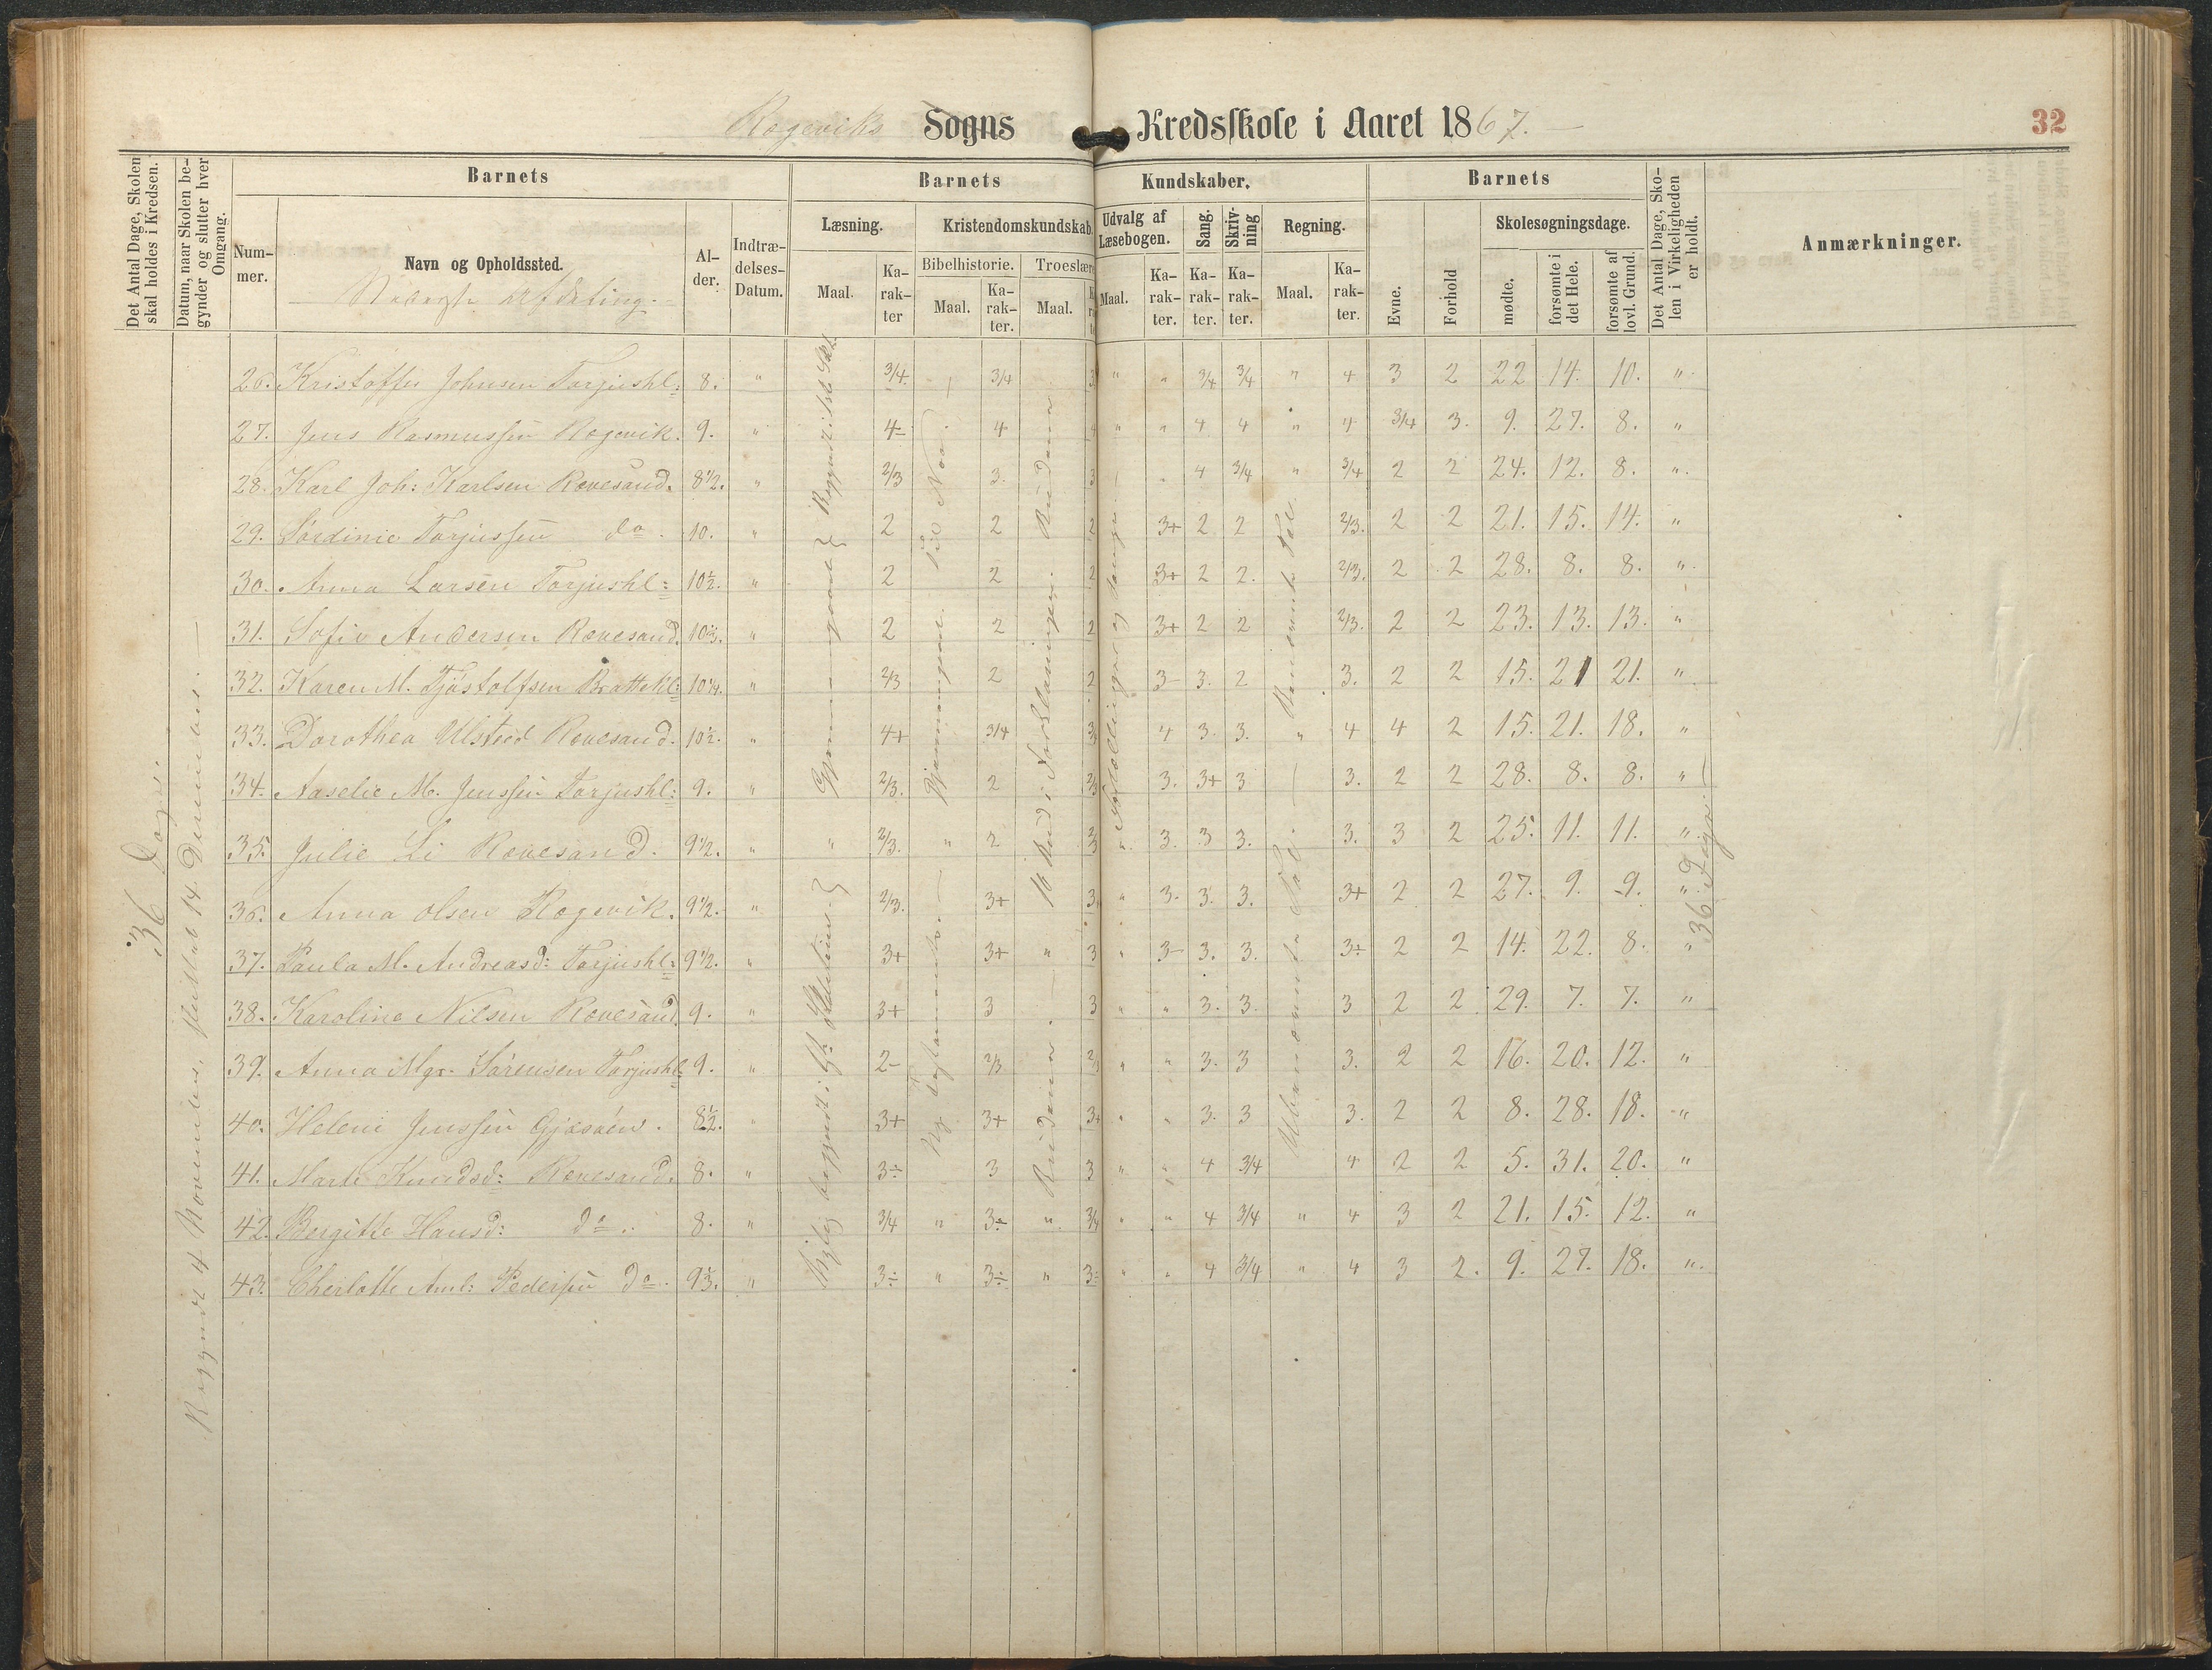 Rægeviks Sogns Kredsskole i Aaret 1867.
32
Det Antal Dage, Skolen skal holdes i Kredsen.
Datum, naar Skolen begynder og slutter hver Omgang.
Barnets
Barnets Kundskaber.
Barnets
Det Antal Dage, Skolen i Virkeligheden er holdt.
Anmærkninger.
Nummer.
Navn og Opholdssted.
Alder.
Indtrædelses-Datum.
Læsning.
Kristendomskundskab
Udvalg af Læsebogen.
Sang.
Skrivning
Regning.
Evne.
Forhold
Skolesøgningsdage.
Maal.
Karakter
Bibelhistorie.
Troeslære
Maal.
Karakter.
Maal.
Maal.
Karakter.
Karakter.
Karakter.
Maal.
Karakter.
mødte.
forsømte i det Hele.
forsømte af lovl. Grund.
36 Dage.
Begyndt 4 November, sluttet 14 December.
26. Kristoffer Johnsen Torjushl: 8. " 3/4. 3/4 " " 3/4 3/4 " 4 3 2 22 14. 10. "
27. Jens Rasmussen Rægevik. 9. " 4- 4 4 " " 4 4 " 4 3/4 3. 9. 27. 8. "
28. Karl Joh: Karlsen Rævesand. 8 1/2. " 2/3 3. 3 " 4 3/4 " 3/4 2 2 24. 12. 8. "
29. Sørdinie Torjussen do. 10. " 2 2 2 3+ 2 2 2/3. 2 2 21. 15. 14. "
30. Anna Larsen Torjushl: 10 1/2. " 2 2 2 3+ 2 2. 2/3. 2 2 28. 8. 8. "
31. Sofie Andersen Rævesand. 10 2/3. " 2 2 2 3+ 2 2 2/3. 2 2 23. 13. 13. "
32. Karen M. Tjøstolfsen Brattekl: 10 1/4. " 2/3 2 2 3- 3. 2 3. 2 2 15. 21 21. "
33. Dorothea Ulsted Rævesand. 10 1/2. " 4+ 3/4 4 3. 3. " 4 4 2 15. 21. 18. "
34. Aaselie M. Jenssen Torjushl: 9. " 2/3. 2 2/3 3. 3+ 3 3. 2 2 28. 8. 8. "
35. Julie Li Rævesand. 9 1/2. " " 2/3. " 2 2/3 3. 3 3. 3. 3 2 25. 11. 11. "
36. Anna Olsen Rægevik. 9 1/2. " 2/3. 3+ 3 " 3. 3. 3. 3+ 2 2 27. 9. 9. "
37. Paula M. Andreasd: Torjushl: 9 1/2. " 3+ 3+ " 3 " 3- 3. 3. 3÷ 2 2 14. 22. 8. "
38. Karoline Nilsen Rævesand. 9. " 3+ 3 3 " " 3. 3. 3 2 2 29. 7. 7. "
39. Anna Mgr. Sørensen Torjushl: 9. " 2- 2/3 " " 3. 3 3. 2 2 16. 20. 12. "
40. Helene Jenssen Gjæsøen. 8 1/2. " 3+ 3+ 3+ " " 3. 3 3. 2 2 8. 28. 18. "
41. Marte Knudsd: Rævesand. 8. " 3÷ 3 3 " " 4 3/4 4 2 2 5. 31. 20. "
42. Bergitte Hansd: do. 8. " 3/4 " 3÷ " 3/4 " " 4 3/4 " 4 3 2 21. 15. 12. "
43. Cherlotte Aml: Pedersen do. 9 1/3. " 3÷ " 3÷ " 3÷ " " 4 3/4 " 4 3 2. 9. 27. 18. "
36 Dage.